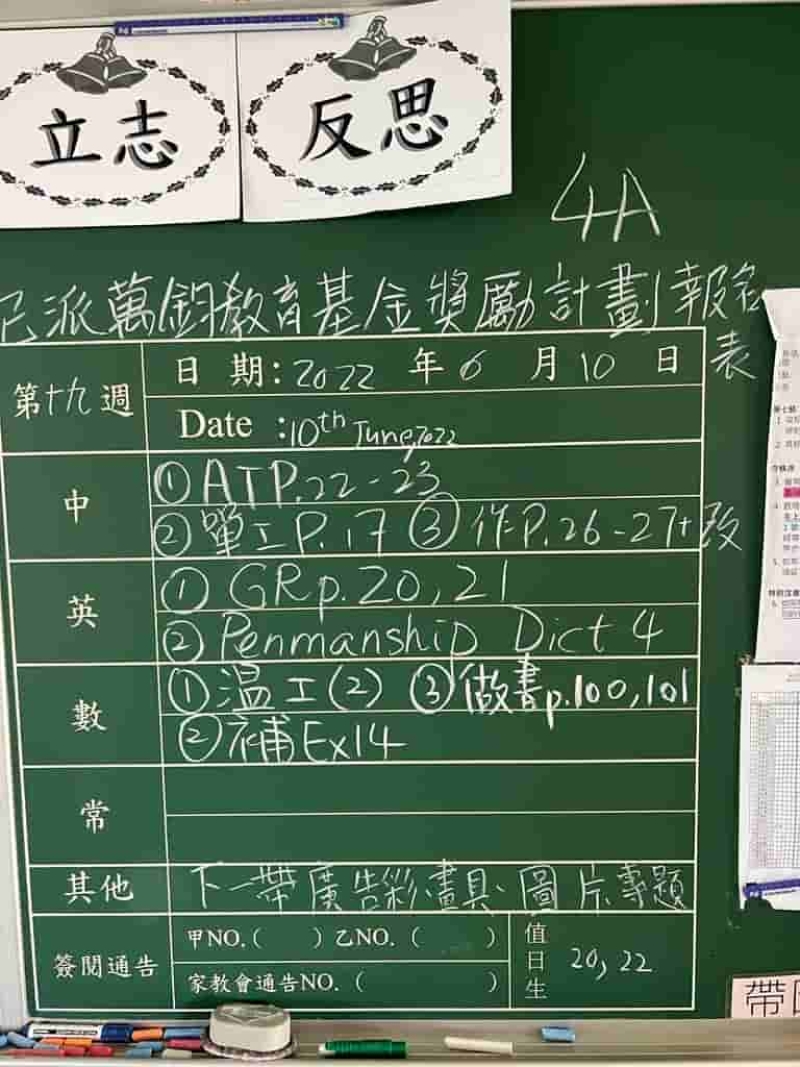 立志 反思
4A
已派萬鈞教育基金獎勵計劃報名
表
第十九週
日 期:2022 年 6 月 10 日
Date :10th June,2022
中
①ATP.22-23
②單工P.17 ③作P.26-27+改
英
①GRp.20,21
②Penmanship Dict 4
數
①溫工(2) ③做書p.100,101
②補Ex14
常
其他
下一帶廣告彩畫具、圖片專題
簽閱通告
甲NO.( )乙NO.( )
家教會通告NO.( )
值日生
20,22
帶